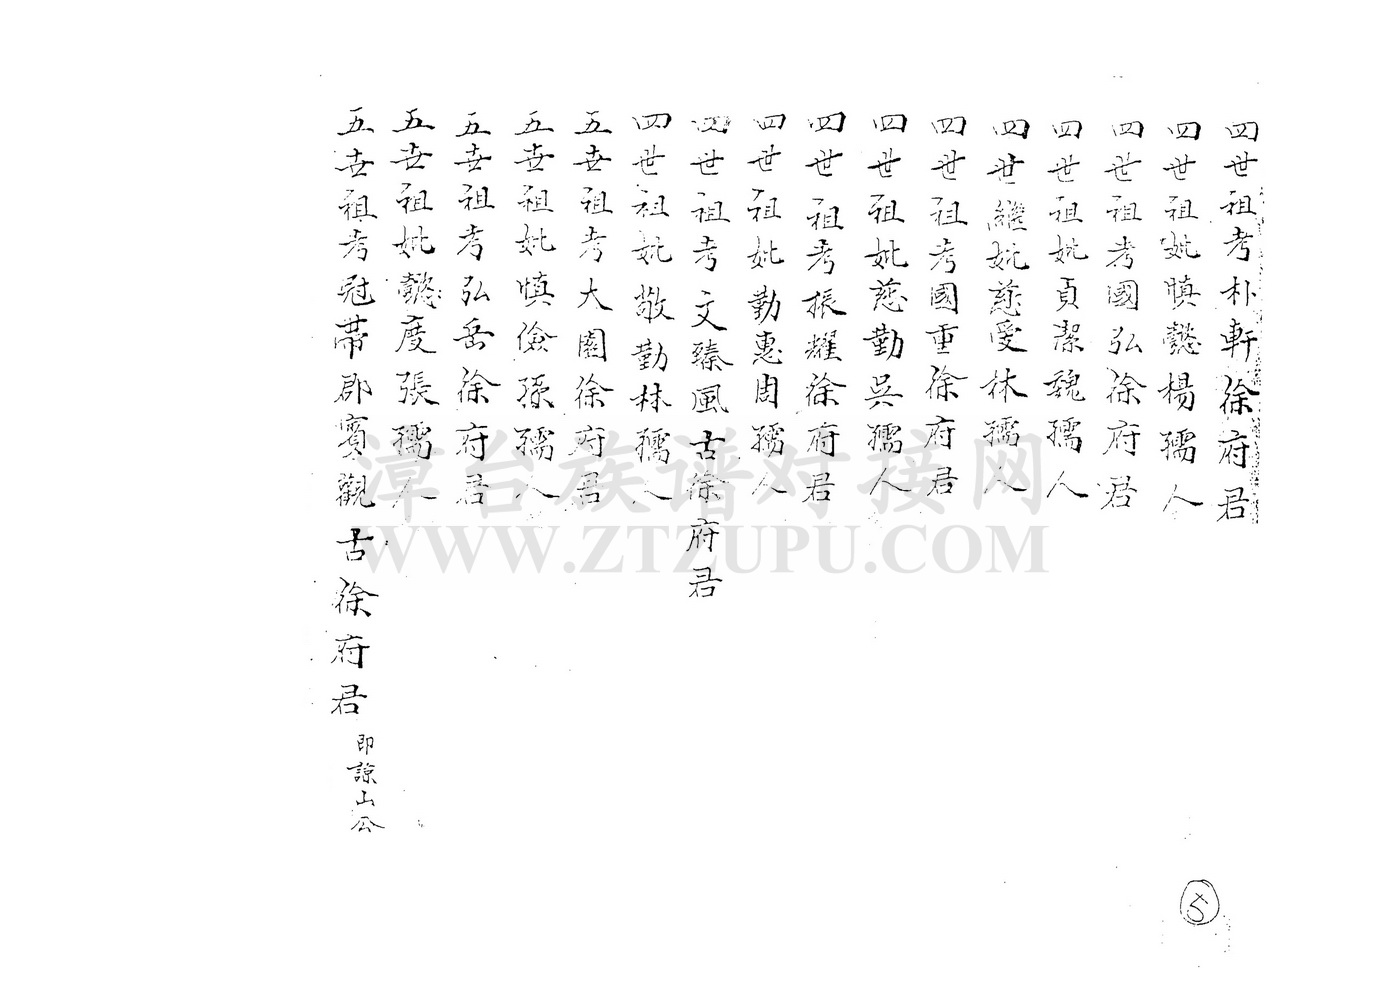 四世祖考朴軒徐府君
四世祖妣慎懿楊孺人
四世祖考國弘徐府君
四世祖妣貞潔魏孺人
四世繼妣慈愛林孺人
四世祖考國重徐府君
四世祖妣慈勤吳孺人
四世祖考振耀徐府君
四世祖妣勤惠周孺人
四世祖考文臻風古徐府君
四世祖妣敬勤林孺人
五世祖考大園徐府君
五世祖妣慎儉孫孺人
五世祖考弘岳徐府君
五世祖妣懿度張孺人
五世祖考冠帶郡賓觀古徐府君
即諒山公
漳台族谱对接网
WWW.ZTZUPU.COM
5